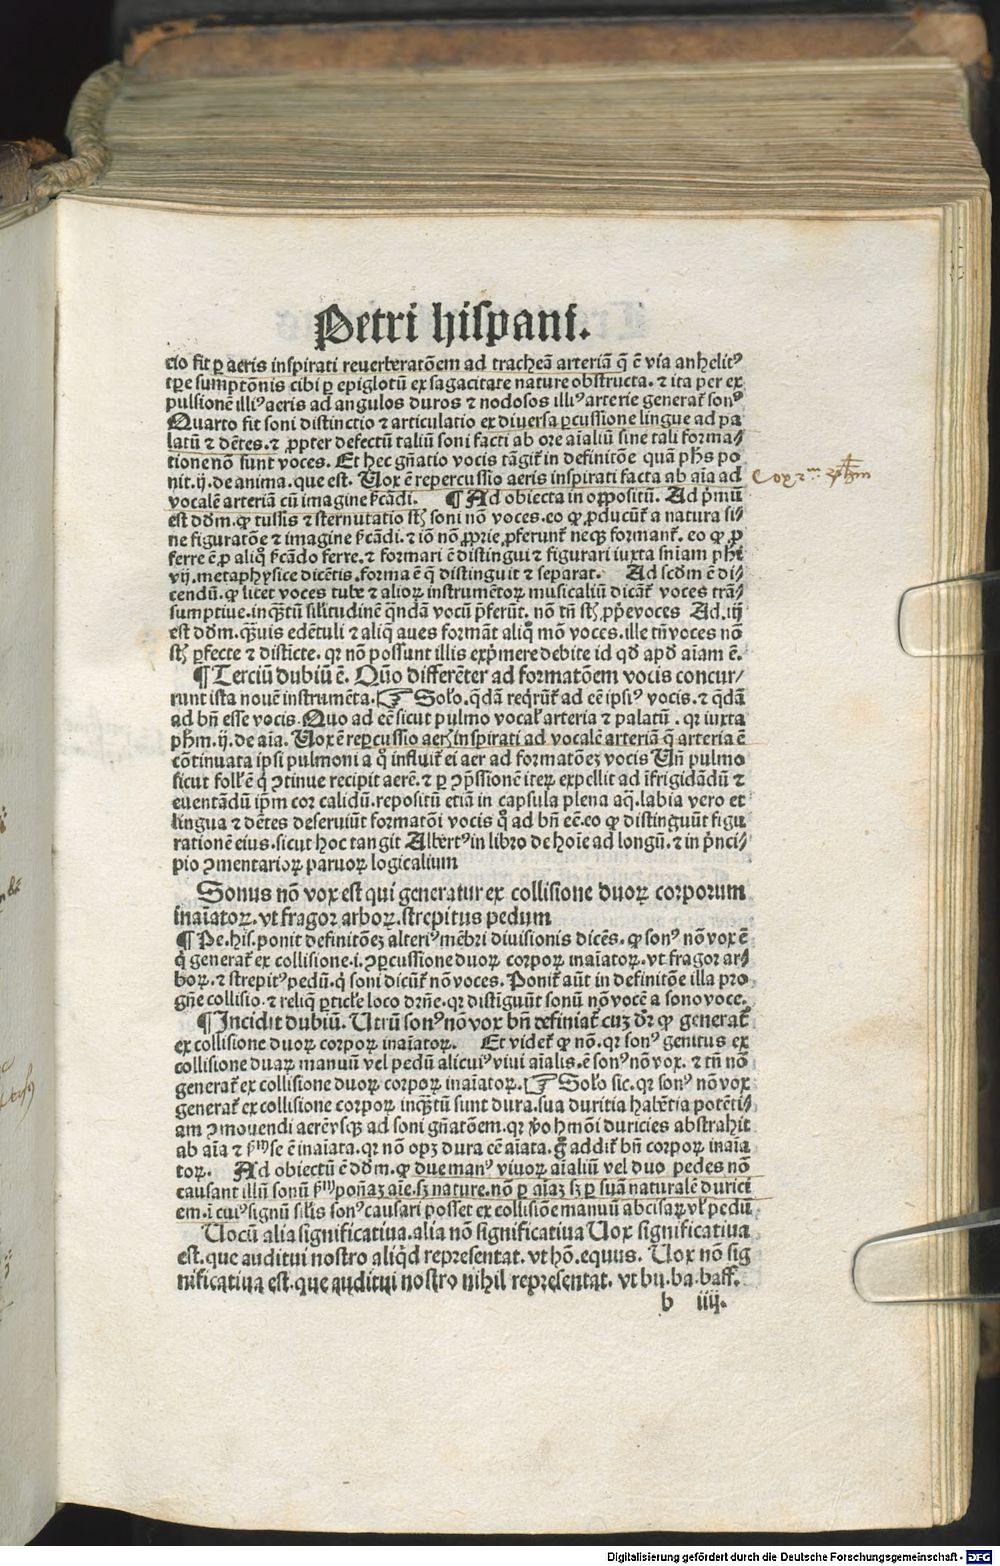 Petri hispani.
cio fit ꝑ aeris inspirati reuerberatōem ad tracheā arteriā q̄ ē via anhelitꝰ
tꝑe sumptōnis cibi ꝑ epiglotū ex sagacitate nature obstructa. ⁊ ita per ex
pulsionē illiꝰ aeris ad angulos duros ⁊ nodosos illiꝰ arterie generat᷑ sonꝰ
Quarto fit soni distinctio ⁊ articulatio ex diuersa ꝑcussione lingue ad pa
latū ⁊ dētes. ⁊ ꝓpter defectū taliū soni facti ab ore aīaliū sine tali forma⸗
tione nō sunt voces. Et hec gn̄atio vocis tāgit᷑ in definitōe quā ph̄s po
nit. ij. de anima. que est. Uox ē repercussio aeris inspirati facta ab aīa ad
vocalē arteriā cū imagine fi̇cādi. ¶ Ad obiecta in oꝑpositū. Ad pͥmū
est dd̄m. ꝙ tussis ⁊ sternutatio st̄ soni nō voces. eo ꝙ ꝓducūt᷑ a natura si⸗
ne figuratōe ⁊ imagine fi̇cādi. ⁊ iō nō ꝓprie ꝓferunt᷑ neqꝫ formant᷑. eo ꝙ ꝓ
ferre ē ꝓ aliqͦ fi̇cādo ferre. ⁊ formari ē distingui ⁊ figurari iuxta sniam ph̄i
vij. metaphysice dicētis. forma ē q̄ distinguit ⁊ separat. Ad scd̄m ē di⸗
cendū. ꝙ licet voces tube ⁊ alioꝝ instrumētoꝝ musicaliū dicāt᷑ voces trā⸗
sumptiue. inqꝫtū silitudinē qͣndā vocū p̄ferūt. nō tn̄ st̄ ꝓpͥe voces Ad. iij
est dd̄m. qꝫuis edētuli ⁊ aliq̄ aues formāt aliqͦ mō voces. ille tn̄ voces nō
st̄ ꝑfecte ⁊ distīcte. qꝛ nō possunt illis expͥmere debite id qd̄ apd̄ aīam ē.
¶ Terciū dubiū ē. Qūo differēter ad formatōem vocis concur⸗
runt ista nouē instrumēta. ☞ Sol̄o. qͣdā reqͥrūt᷑ ad eē ipsiꝰ vocis. ⁊ qͣdā
ad bn̄ esse vocis. Quo ad eē sicut pulmo vocal᷑ arteria ⁊ palatū. qꝛ iuxta
ph̄m. ij. de aīa. Uox ē reꝑcussio aeris inspirati ad vocalē arteriā q̄ arteria ē
cōtinuata ipsi pulmoni a qͦ influit᷑ ei aer ad formatōeꝫ vocis Un̄ pulmo
sicut foll᷑ ē qͥ ꝯtinue recipit aerē. ⁊ ꝑ ꝯp̄ssionē iteꝝ expellit ad īfrigidādū ⁊
euentādū ip̄m cor calidū. repositū etiā in capsula plena aq̄. labia vero et
lingua ⁊ dētes deseruiūt formatōi vocis qͦ ad bn̄ eē. eo ꝙ distinguūt figu
rationē eius. sicut hoc tangit Albertꝰ in libro de hoīe ad longū. ⁊ in pͥnci⸗
pio ꝯmentarioꝝ paruoꝝ logicalium
Sonus nō vox est qui generatur ex collisione duoꝝ corporum
inaīatoꝝ. vt fragor arboꝝ. strepitus pedum
¶ Pe. his. ponit definitōeꝫ alteriꝰ mēbri diuisionis dicēs. ꝙ sonꝰ nō vox ē
qͥ generat᷑ ex collisione. i. ꝯꝑcussione duoꝝ corpoꝝ inaīatoꝝ. vt fragor ar⸗
boꝝ. ⁊ strepitꝰ pedū. qͥ soni dicūt᷑ nō voces. Ponit᷑ aūt in definitōe illa pro
gn̄e collisio. ⁊ reliq̄ ꝑticl᷑e loco dr̄ne. qꝛ distīguūt sonū nō vocē a sono voce.
¶ Incidit dubiū. Utrū sonꝰ nō vox bn̄ definiat᷑ cuꝫ dr̄ ꝙ generat᷑
ex collisione duoꝝ corpoꝝ inaīatoꝝ. Et videt᷑ ꝙ nō. qꝛ sonꝰ genitus ex
collisione duaꝝ manuū vel pedū alicuiꝰ viui aīalis. ē sonꝰ nō vox. ⁊ tn̄ nō
generat᷑ ex collisione duoꝝ corpoꝝ inaīatoꝝ. ☞ Sol̄o sic. qꝛ sonꝰ nō vox
generat᷑ ex collisione corpoꝝ inqꝫtū sunt dura. sua duritia habētia potēti⸗
am ꝯmouendi aerē vsqꝫ ad soni gn̄atōem. qꝛ v̊o hmōi duricies abstrahit
ab aīa ⁊ fͫ se ē inaīata. qꝛ nō opꝫ dura eē aīata. gͦ addit᷑ bn̄ corpoꝝ inaīa
toꝝ. Ad obiectū ē dd̄m. ꝙ due manꝰ viuoꝝ aīaliū vel duo pedes nō
causant illū sonū fͫ poñaꝫ aīe. sꝫ nature. nō ꝑ aīaꝫ sꝫ ꝑ suā naturalē durici
em. i cuiꝰ signū silis sonꝰ causari posset ex collisiōe manuū abcisaꝝ vl᷑ pedū
Uocū alia significatiua. alia nō significatiua Uox significatiua
est. que auditui nostro aliqͥd representat. vt hō. equus. Uox nō sig
nificatiua est. que auditui nostro nihil representat. vt bu. ba. baff.
b iiij.
Digitalisierung gefördert durch die Deutsche Forschungsgemeinschaft - DFG